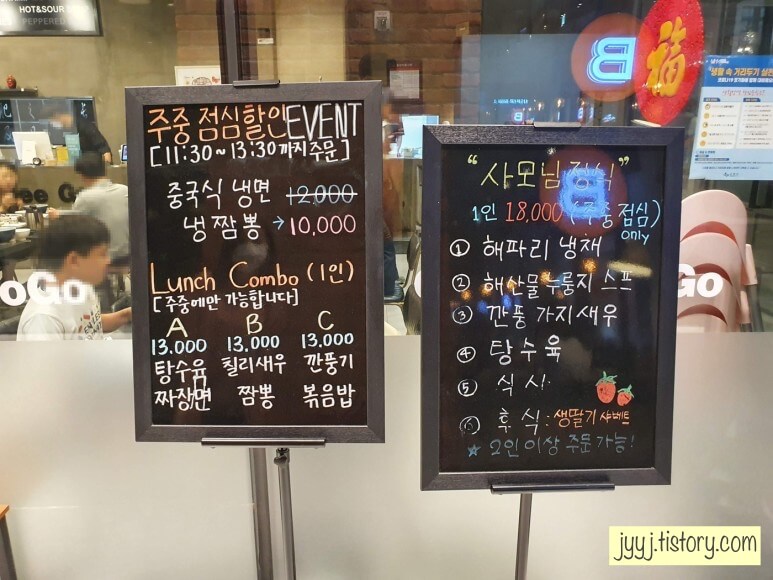 HOT&SOUR
PEPPERED
주중 점심할인 EVENT
[11:30~13:30까지 주문]
중국식 냉면 12,000
냉짬뽕 → 10,000
Lunch Combo (1인)
[주중에만 가능합니다]
A B C
13.000 13.000 13.000
탕수육 칠리새우 깐풍기
짜장면 짬뽕 볶음밥
“사모님 정식”
1인 18,000 (주중 점심)
only
① 해파리 냉채
② 해산물 누룽지 스프
③ 깐풍 가지새우
④ 탕수육
⑤ 식사
⑥ 후식 : 생딸기 샤베트
★ 2인 이상 주문 가능!
B
福
GoGo
Go
jyyj.tistory.com